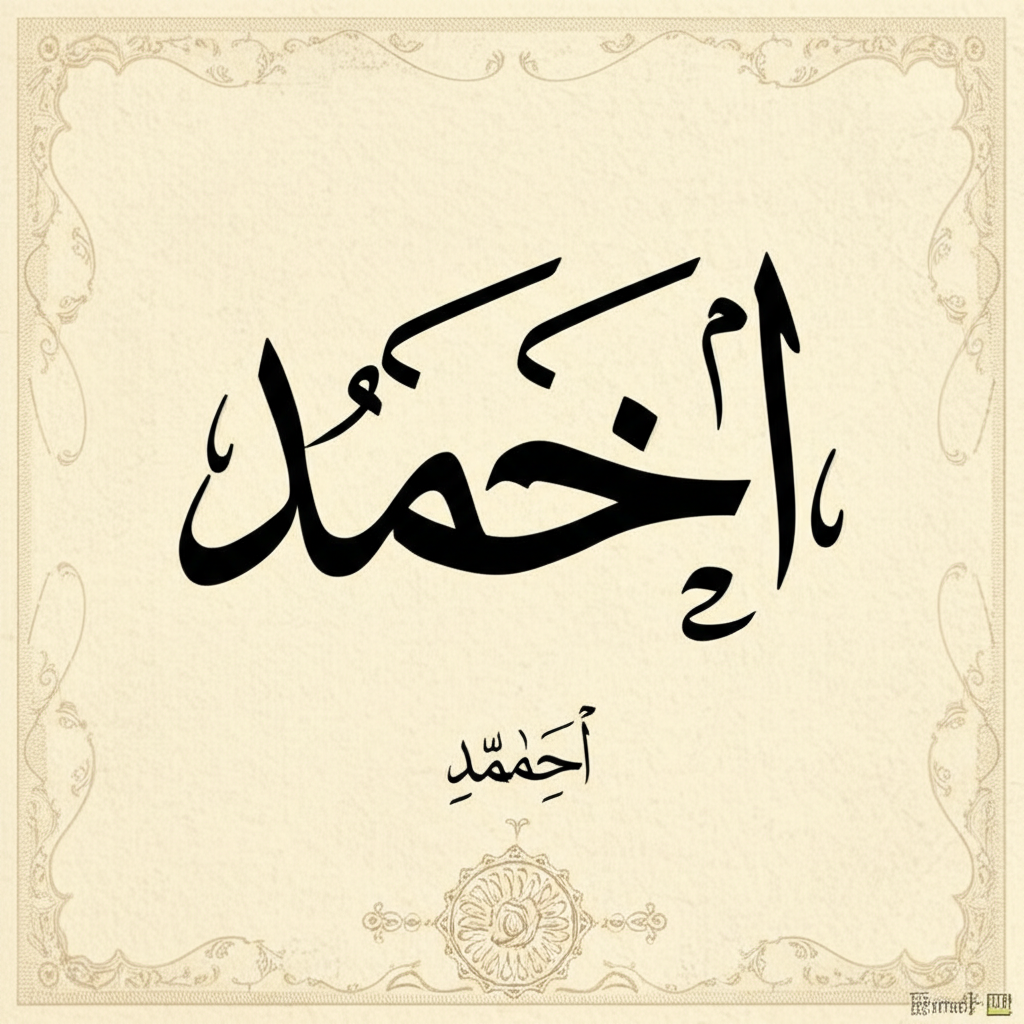 أخمد
أحممد